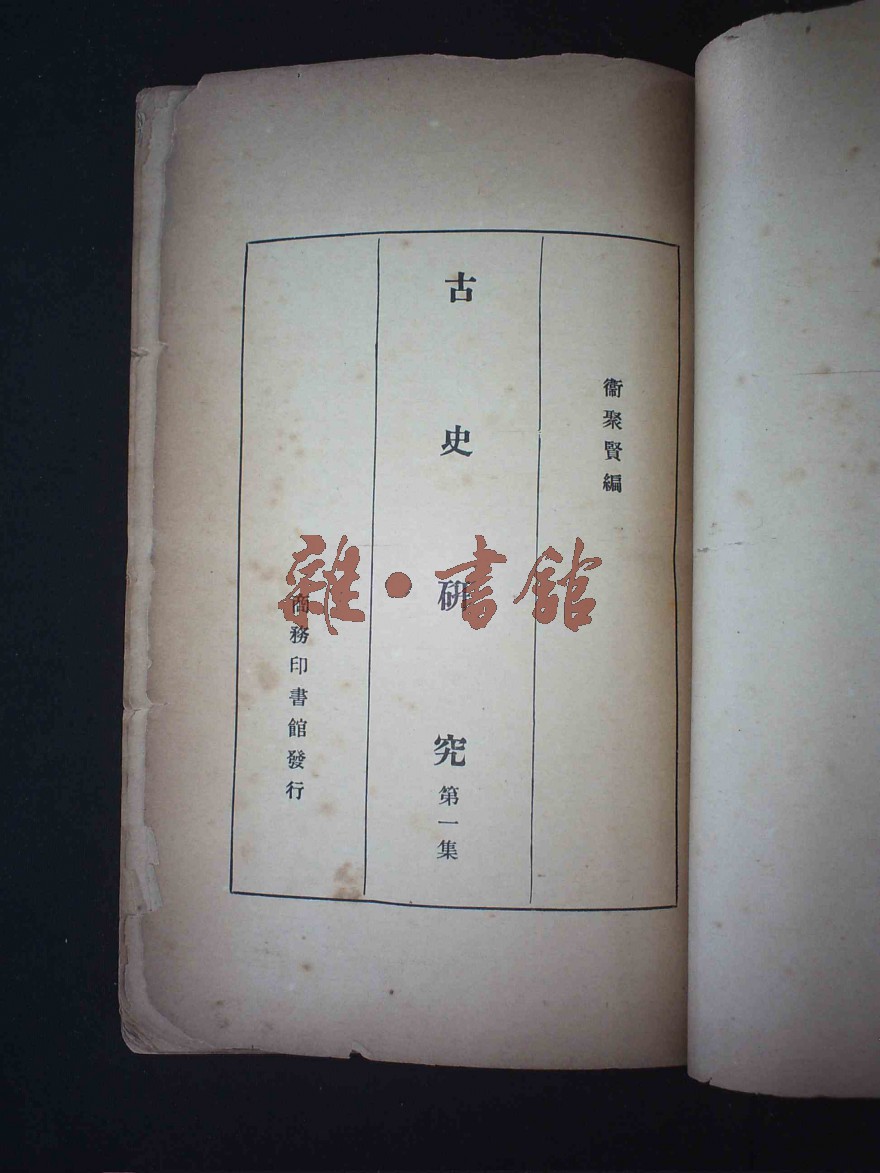 衞聚賢編
古史研究
第一集
商務印書館發行
雜·書館